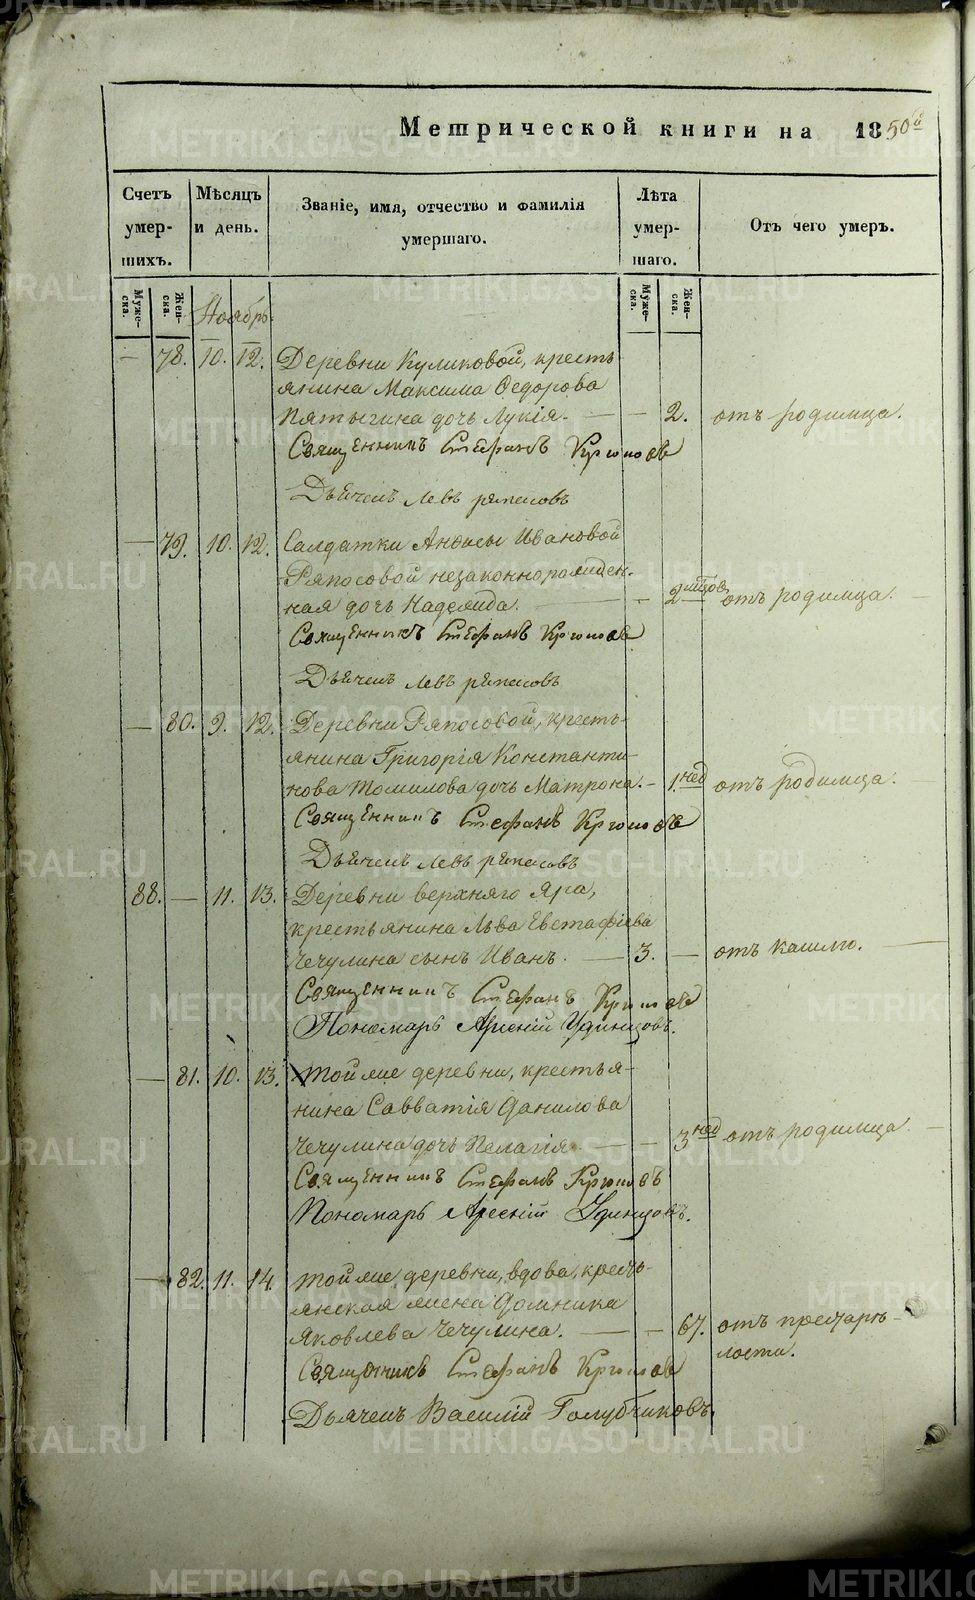 Метрической книги на 1850й
Счетъ умер- шихъ.
Мѣсяцъ и день.
Званіе, имя, отчество и фамилія умершаго.
Лѣта умер- шаго.
Отъ чего умеръ.
Муже- ска.
Жен- ска.
Ноябрь
Муже- ска.
Жен- ска.
— 78. 10. 12. Деревни Куликовой, кресть
янина Максима Ѳедорова
Пятыгина дочь Лукія. — — 2. отъ родимца.
Священникъ Стефанъ
Дьячекъ Левъ
— 79. 10. 12. Салдатки Анѳисы Ивановой
Ряпосовой незаконнорожден-
ная дочь Надежда. — - 2 мѣсцов отъ родимца. —
Священникъ Стефанъ
Дьячекъ Левъ
— 80. 9. 12. Деревни Ряпосовой, кресть-
янина Григорія Константи-
нова Томилова дочь Матрона. - 1 нед отъ родимца. —
Священникъ Стефанъ
Дьячекъ Левъ
88. — 11. 13. Деревни верхняго Яра,
крестьянина Льва Евстафіева
Чечулина сынъ Иванъ. — 3. — отъ кашлю. —
Священникъ Стефанъ
Пономарь Арсеній Удинцовъ.
— 81. 10. 13. Той же деревни, крестья-
нина Савватія Данилова
Чечулина дочь Пелагія. — — 3 нед отъ родимца —
Священникъ Стефанъ
Пономарь Арсеній Удинцовъ.
— 82. 11. 14. Той же деревни, вдова, кресть-
янская жена Домника
Яковлева Чечулина. — — 67. отъ престарѣ-
лости.
Священникъ Стефанъ
Дьячекъ Василій Голубчиковъ.
METRIKI.GASO-URAL.RU